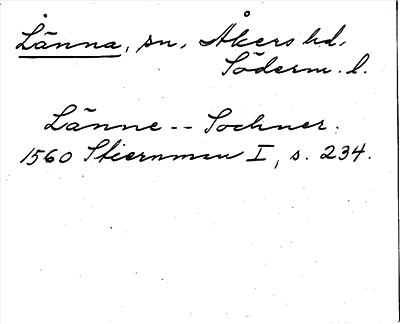 Länna, sn, Åkers hd,
Söderm. l.
Länne -- Sochner.
1560 Stiernman I, s. 234.